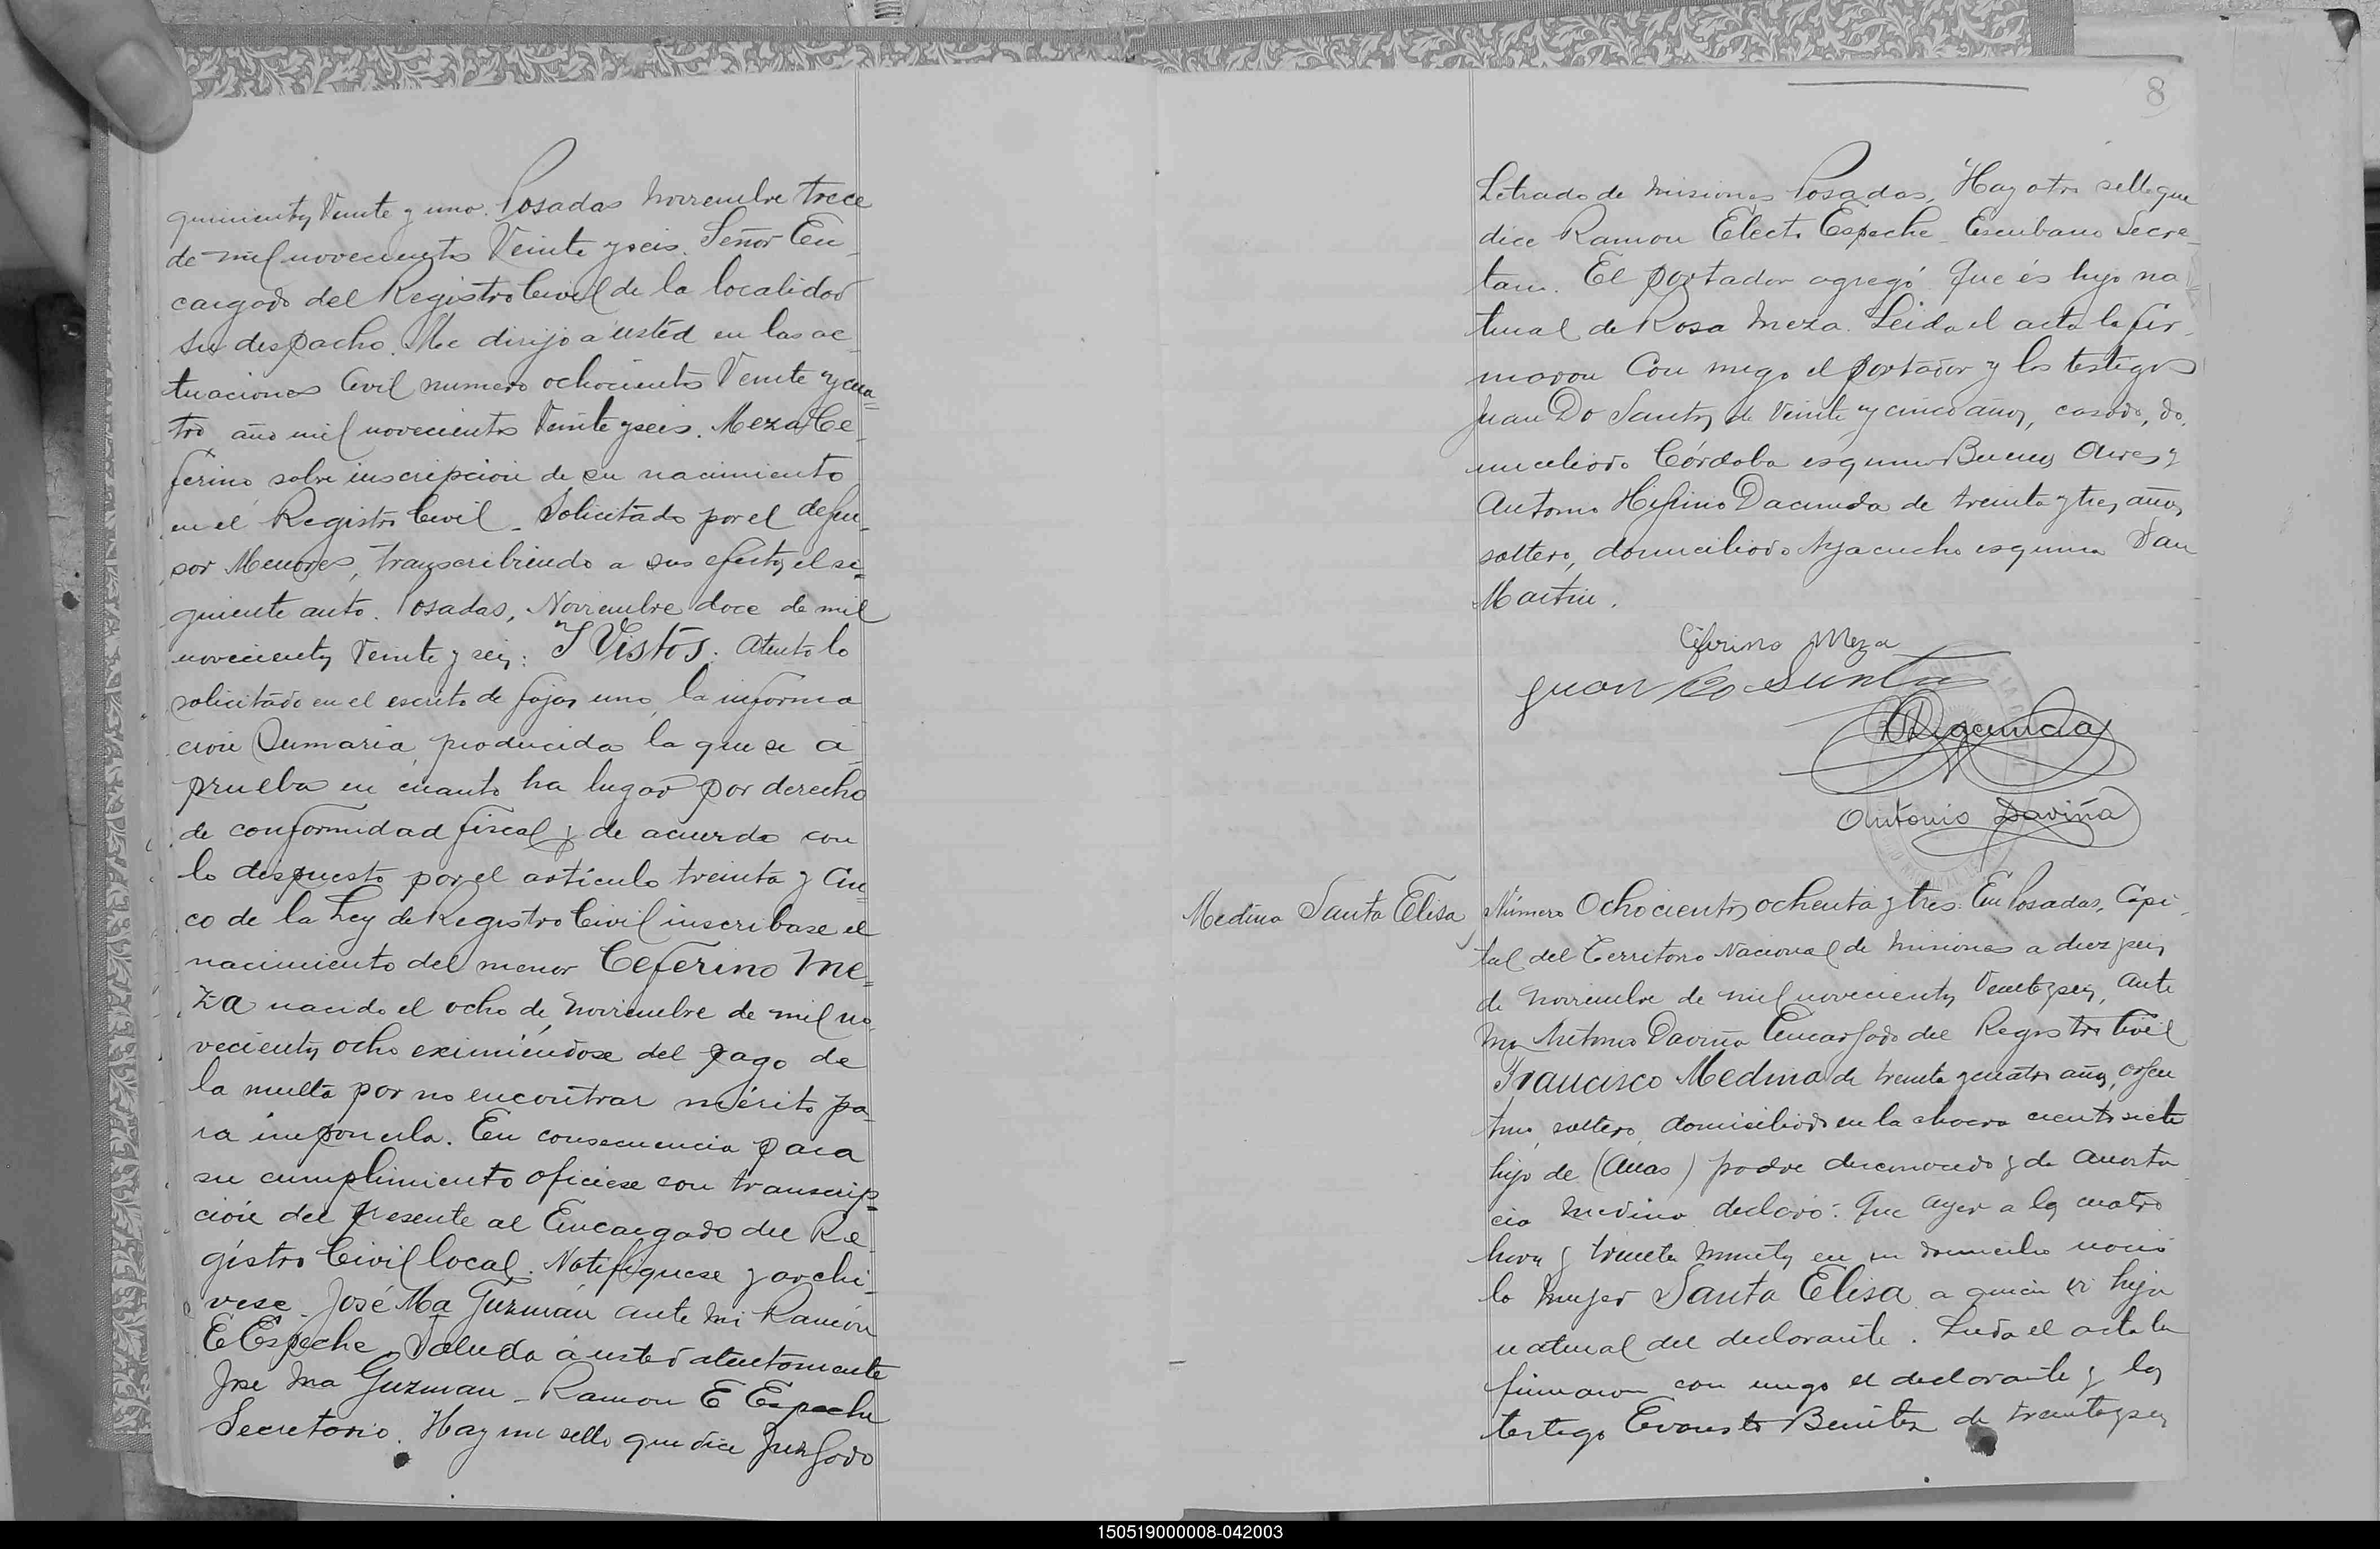 quinientos Veinte y uno. Posadas Noviembre trece
de mil novecientos Veinte y seis. Señor En-
cargado del Registro Civil de la localidad
su despacho. Me dirijo a usted en las ac-
tuaciones Civil numero ochocientos Veinte y cua=
tro año mil novecientos Veinte y seis. Meza Ce-
ferino sobre inscripción de su nacimiento
en el Registro Civil - Solicitado por el defen-
sor Menores, transcribiendo a sus efectos el si=
guiente auto. Posadas, Noviembre doce de mil
novecientos Veinte y seis: Y Vistos: Atento lo
solicitado en el escrito de fojas uno, la informa
ción Sumaria producida la que se a-
prueba en cuanto ha lugar por derecho
de conformidad fiscal y de acuerdo con
lo dispuesto por el artículo treinta y cin=
co de la Ley de Registro Civil inscribase el
nacimiento del menor Ceferino Me=
za nacido el ocho de Noviembre de mil no
vecientos ocho eximiéndose del pago de
la multa por no encontrar mérito pa-
ra imponerla. En consecuencia para
su cumplimiento oficiese con transcrip=
ción del presente al Encargado del Re-
gistro Civil local. Notifíquese y archi-
vese - José Ma Guzmán ante mi Ramón
E Espeche. Saluda á usted atentamente
Jose Ma Guzman - Ramon E Espeche
Secretario. Hay un sello que dice Juzgado
8
Letrado de Misiones Posadas, Hay otro sello que
dice Ramon Electo Espeche - Escribano Secre-
tario. El portador agregó: Que és hijo na
tural de Rosa Meza. Leida el acta la fir-
maron con migo el portador y los testigos
Juan Do Santos de Veinte y cinco años, casado, do-
miciliado Córdoba esquina Buenos Aires y
Antonio Higino Dacunda de treinta y tres años
soltero, domiciliado Ayacucho esquina San
Martin.
Ceferino Meza
Juan Do Santos
Dacunda
Antonio Daviña
Medina Santa Elisa
Número Ochocientos ochenta y tres. En Posadas, Capi-
tal del Territorio Nacional de Misiones a diez y seis
de Noviembre de mil novecientos Veinte y seis, ante
mi Antonio Daviña Encargado del Registro Civil
Francisco Medina de treinta y cuatro años, argen
tino, soltero, domiciliado en la chacra ciento siete
hijo de padre desconocido y de Anasta
cia Medina declaró: Que ayer a las cuatro
horas y treinta minutos en su domicilio nació
la mujer Santa Elisa a quien hija
natural del declarante. Leida el acta la
firmaron con migo el declarante y los
testigo Evaristo Benitez de treinta y seis
150519000008-042003